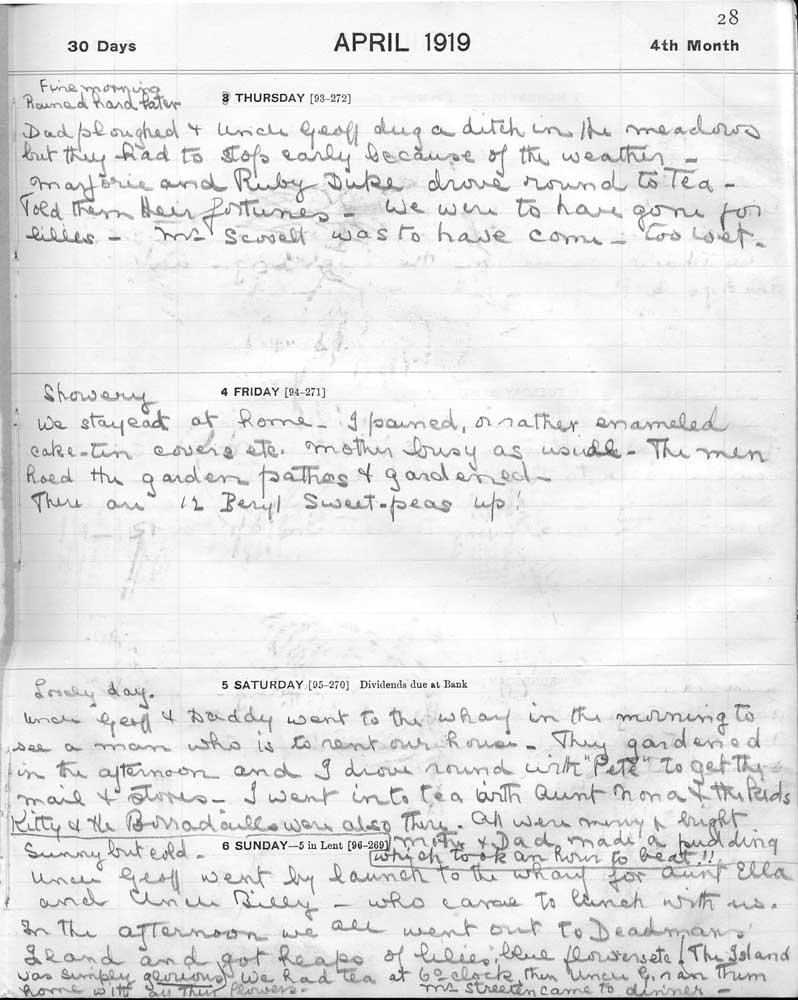 28
30 Days APRIL 1919 4th Month
Fine morning
Rained hard later
3 THURSDAY [93-272]
Dad ploughed & Uncle Geoff dug a ditch in the meadows
but they had to stop early because of the weather -
Marjorie and Ruby Duke drove round to Tea -
Told them their fortunes - We were to have gone for
lilies - Mrs Scovell was to have come - too wet.
Showery
4 FRIDAY [94-271]
We stayed at home - I pained, or rather enameled
cake-tin covers etc. Mother busy as usual - The men
hoed the garden pathes & gardened -
There are 12 Beryl Sweet-peas up!
Lovely day.
5 SATURDAY [95-270] Dividends due at Bank
Uncle Geoff & Daddy went to the wharf in the morning to
see a man who is to rent our house - They gardened
in the afternoon and I drove round with "Pete" to get the
mail & stores - I went in to tea with Aunt Nona & the kids
Kitty & the Borradailes were also there. All were merry & bright
Mother & Dad made a pudding
which took an hour to beat!!
Sunny but cold -
6 SUNDAY—5 in Lent [96-269]
Uncle Geoff went by launch to the wharf for Aunt Ella
and Uncle Billy - who came to lunch with us.
In the afternoon we all went out to Deadmans'
Island and got heaps of lilies, blue flowers etc! The Island
was simply glorious, we had tea at 6 o'clock, then Uncle G. ran them
home with all their flowers -
Mrs Streeten came to dinner -